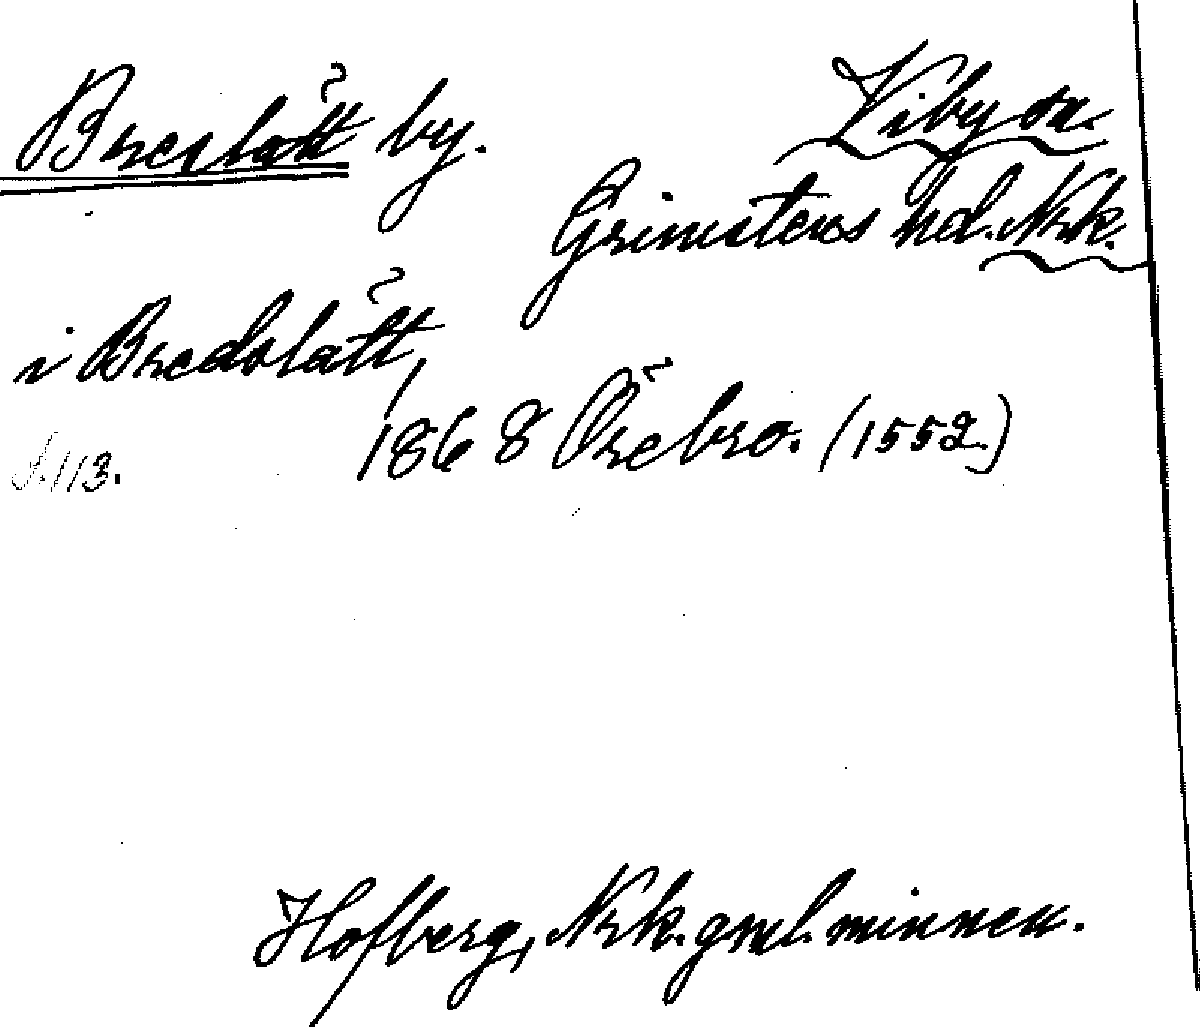 Breslätt by. Viby sn.
Grimstens hd. Nrk.
i Bredslätt,
1868 Örebro. (1552.)
s. 113.
Hofberg, Nrk. gml. minnen.